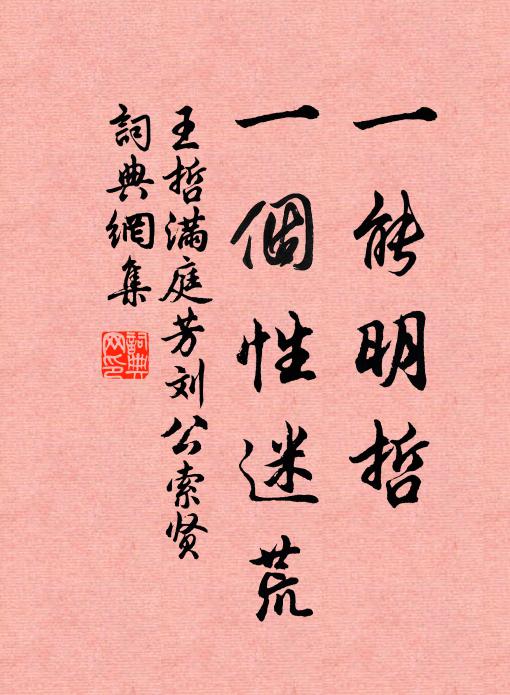 一能明哲
一個性迷荒
王哲满庭芳刘公索贤
詞典網集
詞典网印